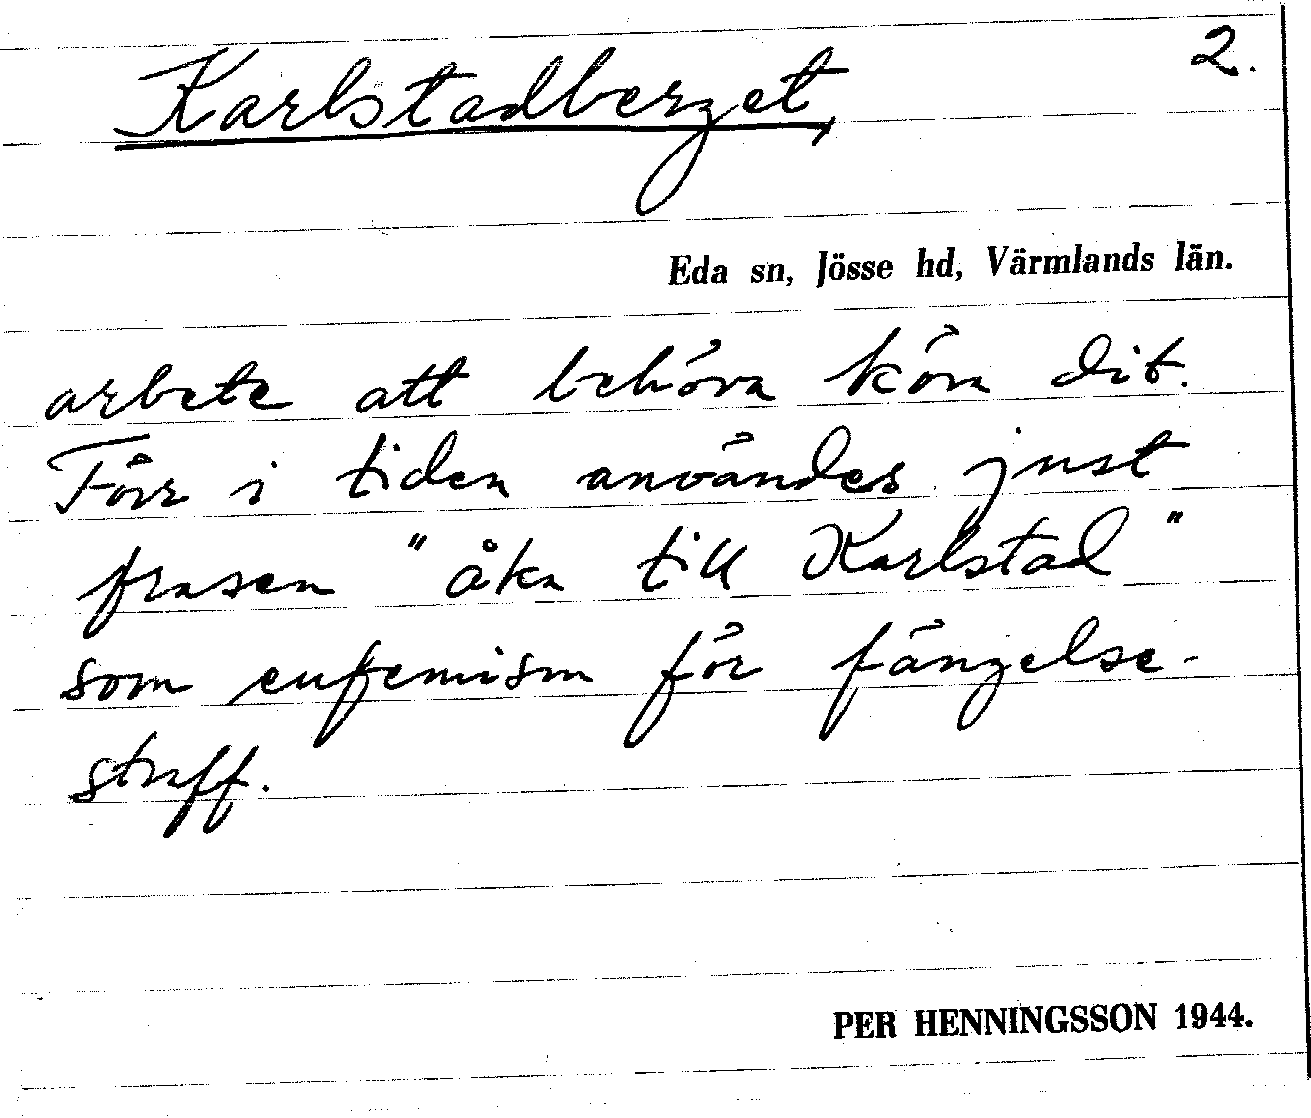 2.
Karlstadberget,
Eda sn, Jösse hd, Värmlands län.
arbete att behöva köra dit.
Förr i tiden användes just
frasen "åka till Karlstad"
som eufemism för fängelse-
straff.
PER HENNINGSSON 1944.